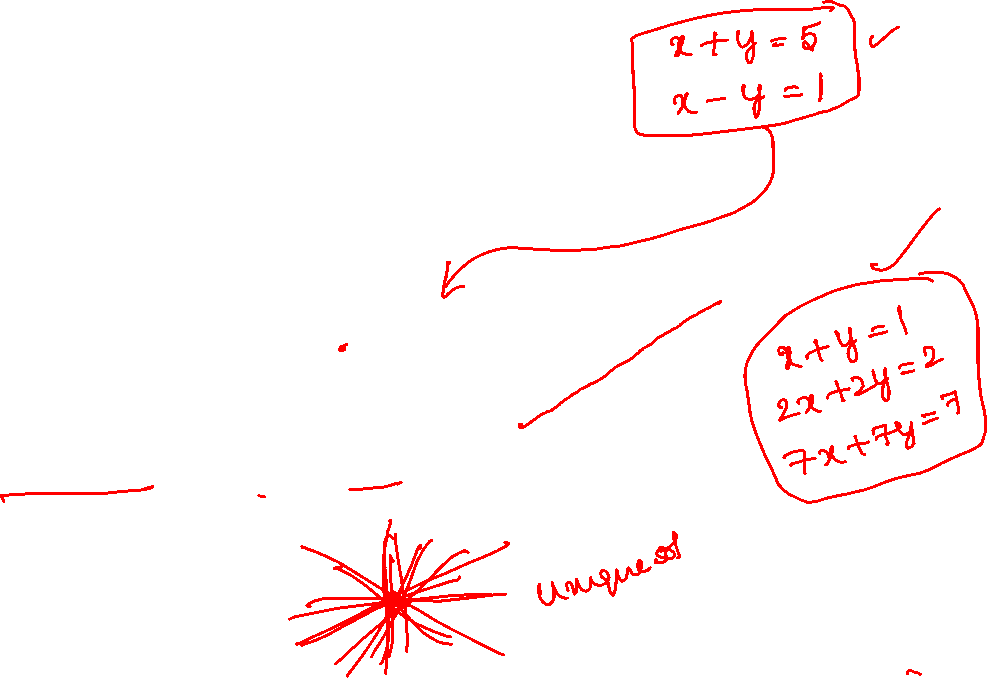 x + y = 5
x - y = 1
x + y = 1
2x + 2y = 2
7x + 7y = 7
unique sol